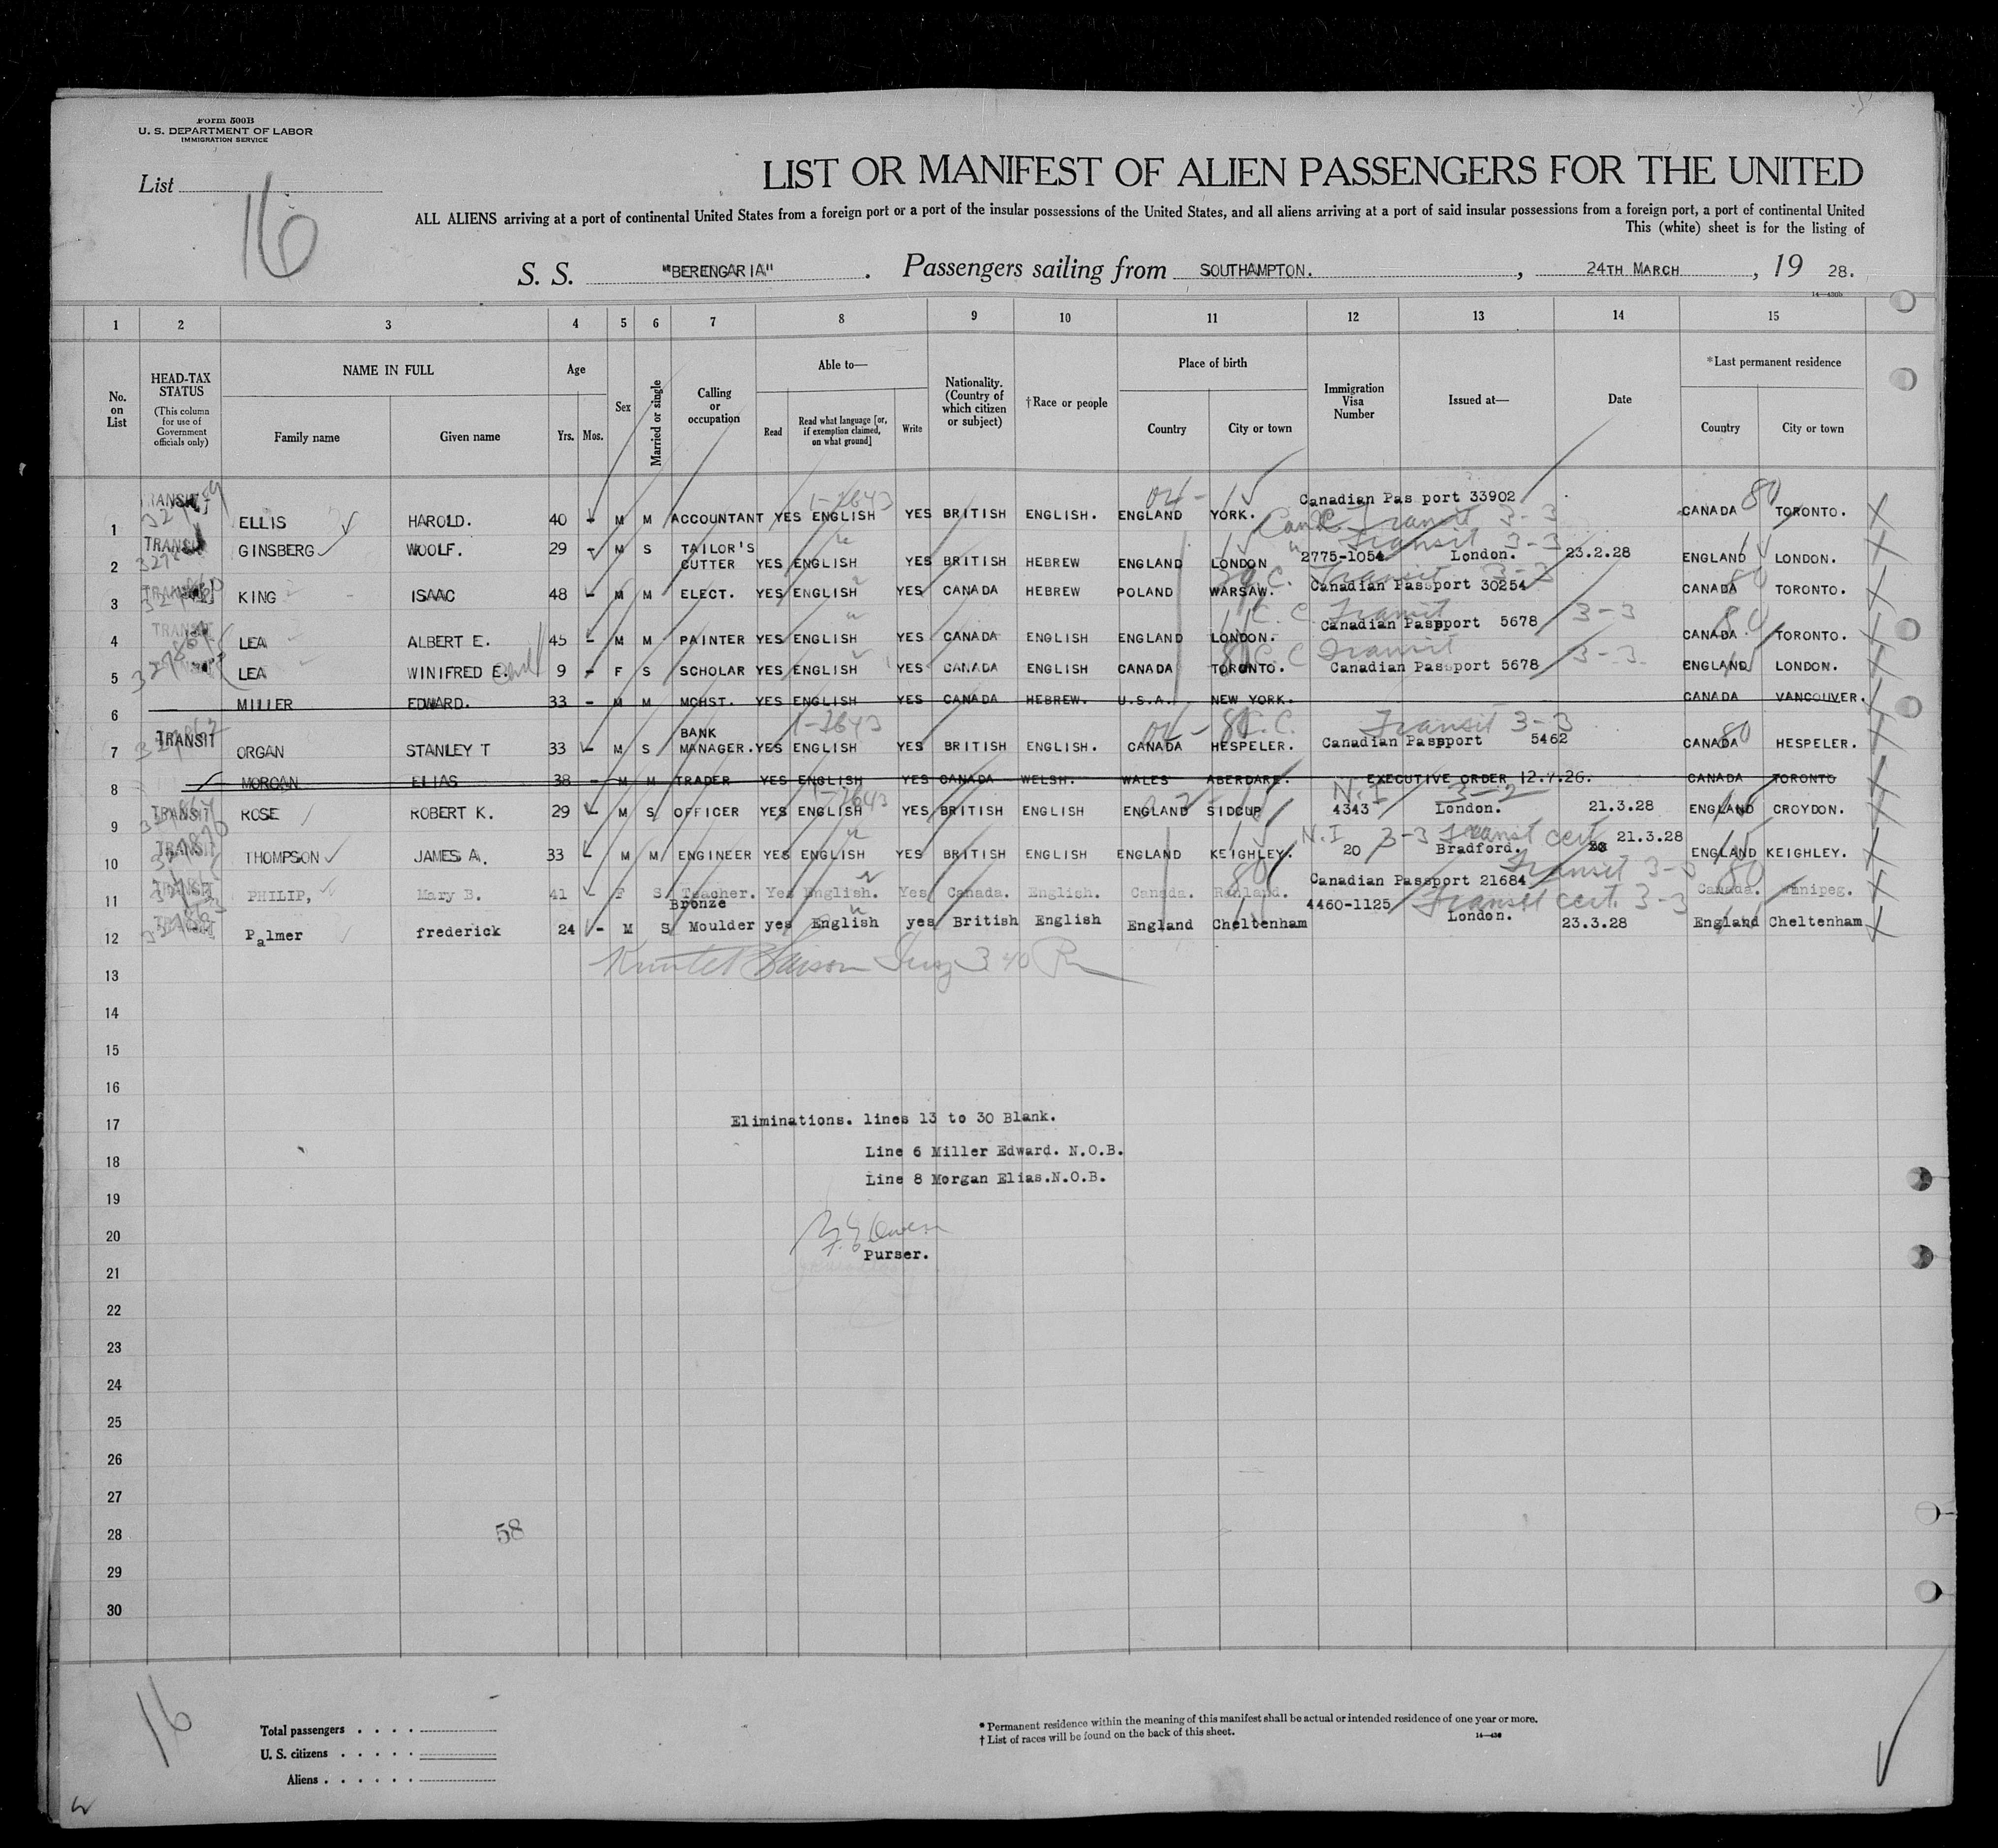 Form 500B
U. S. DEPARTMENT OF LABOR
IMMIGRATION SERVICE
List 16
LIST OR MANIFEST OF ALIEN PASSENGERS FOR THE UNITED
ALL ALIENS arriving at a port of continental United States from a foreign port or a port of the insular possessions of the United States, and all aliens arriving at a port of said insular possessions from a foreign port, a port of continental United
This (white) sheet is for the listing of
S. S. "BERENGARIA". Passengers sailing from SOUTHAMPTON., 24TH MARCH, 19 28.
1 2 3 4 5 6 7 8 9 10 11 12 13 14 15
No. on List
HEAD-TAX STATUS (This column for use of Government officials only)
NAME IN FULL
Family name Given name
Age
Yrs. Mos.
Sex
Married or single
Calling or occupation
Able to—
Read
Read what language [or, if exemption claimed, on what ground]
Write
Nationality. (Country of which citizen or subject)
†Race or people
Place of birth
Country City or town
Immigration Visa Number
Issued at—
Date
*Last permanent residence
Country City or town
1 ELLIS HAROLD. 40 - M M ACCOUNTANT YES ENGLISH YES BRITISH ENGLISH. ENGLAND YORK. Canadian Pas port 33902 Transit 3-3 CANADA 80 TORONTO.
2 TRANSIT GINSBERG WOOLF. 29 - M S TAILOR'S CUTTER YES ENGLISH YES BRITISH HEBREW ENGLAND LONDON 2775-1054 Transit 3-3 London. 23.2.28 ENGLAND LONDON.
3 TRANSIT KING ISAAC 48 - M M ELECT. YES ENGLISH YES CANADA HEBREW POLAND WARSAW. Canadian Passport 30254 Transit 3-3 CANADA 80 TORONTO.
4 TRANSIT LEA ALBERT E. 45 - M M PAINTER YES ENGLISH YES CANADA ENGLISH ENGLAND LONDON. C.C. Transit Canadian Passport 5678 3-3 CANADA 80 TORONTO.
5 LEA WINIFRED E. 9 - F S SCHOLAR YES ENGLISH YES CANADA ENGLISH CANADA TORONTO. C.C Transit Canadian Passport 5678 3-3 ENGLAND LONDON.
6 MILLER EDWARD. 33 - M M MCHST. YES ENGLISH YES CANADA HEBREW. U.S.A. NEW YORK. CANADA VANCOUVER.
7 TRANSIT ORGAN STANLEY T 33 - M S BANK MANAGER. YES ENGLISH YES BRITISH ENGLISH. CANADA HESPELER. C.C. Transit 3-3 Canadian Passport 5462 CANADA 80 HESPELER.
8 MORGAN ELIAS 38 - M M TRADER YES ENGLISH YES CANADA WELSH. WALES ABERDARE. EXECUTIVE ORDER 12.7.26. CANADA TORONTO
9 TRANSIT ROSE ROBERT K. 29 - M S OFFICER YES ENGLISH YES BRITISH ENGLISH ENGLAND SIDCUP N.I 4343 3-2 London. 21.3.28 ENGLAND CROYDON.
10 TRANSIT THOMPSON JAMES A. 33 - M M ENGINEER YES ENGLISH YES BRITISH ENGLISH ENGLAND KEIGHLEY. N.I 20 3-3 Transit cert Bradford. 21.3.28 ENGLAND KEIGHLEY.
11 PHILIP, Mary B. 41 F S Teacher. Yes English. Yes Canada. English. Canada. Canadian Passport 21684 Transit 3-3 Canada. 80 Winnipeg.
12 Palmer frederick 24 - M S Bronze Moulder yes English yes British English England Cheltenham 4460-1125 Transit cert. 3-3 London. 23.3.28 England Cheltenham
13
14
15
16
17 Eliminations. lines 13 to 30 Blank.
18 Line 6 Miller Edward. N.O.B.
Line 8 Morgan Elias.N.O.B.
19
20
Purser.
21
22
23
24
25
26
27
28 58
29
30
16
Total passengers . . . .
U. S. citizens . . . . .
Aliens . . . . . .
* Permanent residence within the meaning of this manifest shall be actual or intended residence of one year or more.
† List of races will be found on the back of this sheet.